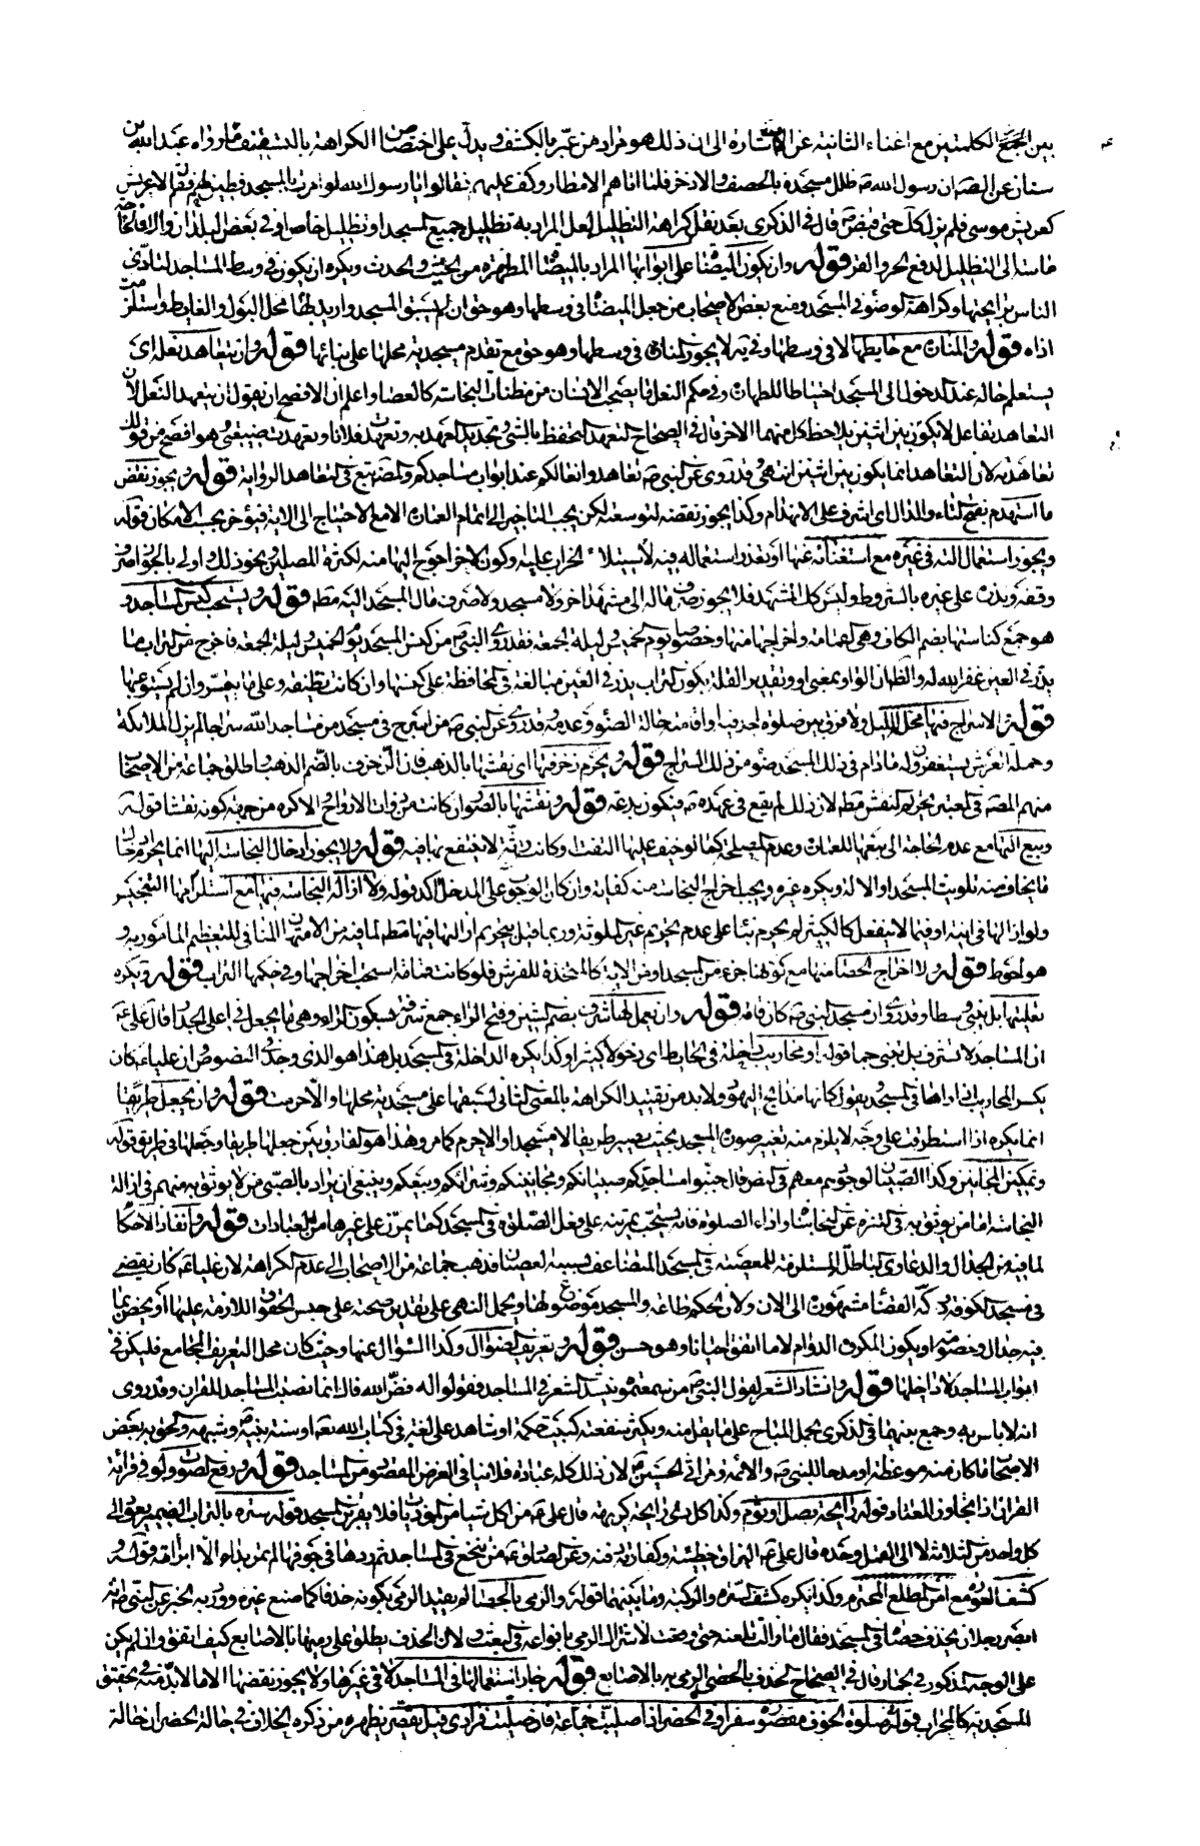 بين الجمع الكلمتين مع اغناء الثانية عن الاشارة الى ان ذلك هو مراد من عبّر بالكشف ويدل على اختصاص الكراهة بالتسقيف ما رواه عبد الله بن
سنان عن الصه ان رسول الله صه ظلل مسجده بالخصف والاذخر فلما اتاهم الامطار وكف عليهم فقالوا يا رسول الله لو امرت بالمسجد فطين لهم فقال لا عريش
كعريش موسى فلم يزل كك حتى قبض صه قال في الذكرى بعد نقل كراهة التظليل لعل المراد به تظليل جميع المسجد او تظليل خاص او في بعض البلدان والا فالحاجة
ماسة الى التظليل لدفع الحر والقر قوله وان يكون الميضاة على ابوابها المراد بالميضاة المطهرة من الخبث والحدث ويكره ان يكون في وسط المساجد لتأذى
الناس برايحتها وكراهة الوضوء في المسجد ومنع بعض الاصحاب من جعل الميضاة في وسطها وهو حق ان لم يسبق المسجد واريد بها محل البول والغايط واستلزمت
اذاه قوله والمنارة مع حايطها لا في وسطها وفي يه لا يجوز المنارة في وسطها وهو حق مع تقدم مسجدية محلها على بنائها قوله وان يتعاهد نعله اى
يستعلم حاله عند الدخول الى المسجد احتياطا للطهارة وفي حكم النعل ما يصحب الانسان من مظنات النجاسة كالعصا واعلم ان الافصح ان يقول ان يتعهد النعل لان
التعاهد تفاعل لا يكون بين اثنين يلاحظ كل منهما الآخر قال في الصحاح التعهد التحفظ بالشئ وتجديد العهد به وتعهدت فلانا وتعهدت ضيعتي وهو افصح من قولك
تعاهدته لان التعاهد انما يكون بين اثنين انتهى وقد روى عن النبي صه تعاهدوا نعالكم عند ابواب مساجدكم والمصه تبع في التعاهد الرواية قوله ويجوز نقض
ما استهدم بفتح التاء والدال اى اشرف على الانهدام وكذا يجوز نقضه لتوسعته لكن يجب التاخير الى اتمام العمارة الا مع الاحتياج الى الالة فيؤخر بحسب الامكان قوله
ويجوز استعمال الته في غيره مع استغنائه عنها او تعذر استعمالها فيه لاستيلاء الخراب عليه وكون الاخر احوج اليها منه لكثرة المصلين ونحو ذلك
هو جمع كناستها بضم الكاف وهي القمامة واخراجها منها وخصوصا يوم الخميس وليلة الجمعة فقد روى النبي صه من كنس المسجد يوم الخميس ليلة الجمعة فاخرج من التراب ما
يذر في العين غفر الله له والظاهر ان الواو بمعنى او وتقدير القلة بكون التراب يذر في العين مبالغة في المحافظة على كنسها وان كانت نظيفة
قوله والاسراج فيها محل الليل ولا فرق بين صلوة احد فيها واقامته حالة الضوء وعدمه وقد روى عن النبي صه من اسرج في مسجد من مساجد الله سراجا لم يزل الملائكة
وحملة العرش يستغفرون له مادام في ذلك المسجد ضوء من ذلك السراج قوله ويحرم زخرفتها اى نقشها بالذهب فان الزخرف بالضم الذهب واطلق جماعة من الاصحاب
منهم المصه في المعتبر تحريم النقش مطه لان ذلك لم يقع في عهده صه فيكون بدعه قوله ونقشها بالصور ان كانت من ذوات الارواح والا كره من جهة كونه نقشا قوله
وبيع آلتها مع عدم الحاجة الى بيعها للعمارة وعدم المصلحة كما لو خيف عليها التلف وكانت رثّة لا ينتفع بها فيه قوله ولا يجوز ادخال النجاسة اليها انما يحرم ادخال
ما يخاف منه تلويث المسجد او الآلة ويكره غيره ويجب اخراج النجاسة منه كفاية وان كان الوجوب على المدخل آكد قوله ولا ازالة النجاسة فيها مع استلزامها التنجيس
ولو ازالها في انية او فيما لا ينفعل كالكثير لم يحرم بناء على عدم تحريم غير الملوثة وربما قيل بتحريم ازالتها فيها مطه لما فيه من الامتهان المنافي للتعظيم المأمور به و
هو احوط قوله ولا اخراج الحصا منها مع كونها جزء من المسجد او من الآلة كالمتخذة للفرش فلو كانت قمامة استحب اخراجها وفي حكمها التراب قوله ويكره
تعليتها بل يبنى وسطا وقد روى ان مسجد النبي صه كان قامة قوله وان يعمل لها شرف بضم الشين وفتح الراء جمع شرفة بسكون الراء وهي ما يجعل في اعلى الجدار قال علي عه
ان المساجد لا تشرف بل تبنى جما قوله او محاريب داخلة في الحايط اى دخولا كثيرا وكذا يكره الداخلة في المسجد بل هذا هو الذى وجد في النصوص ان عليا عه كان
يكسر المحاريب اذا رآها في المسجد ويقول كانها مذابح اليهود ولا بد من تقييد الكراهة بالمعنى الثاني بسبقها على مسجدية محلها والا حرمت قوله وان يجعل طريقا
انما يكره اذا استطرقت على وجه لا يلزم منه تغيير صورة المسجد بحيث يصير طريقا لا مسجدا والا حرم كما مر وهذا هو الفارق بين جعلها طريقا وجعلها في طريق قوله
وتمكين المجانين وكذا الصبيان لوجودهم معهم في النص قال جنّبوا مساجدكم صبيانكم ومجانينكم وشرائكم وبيعكم وينبغي ان يراد بالصبي من لا يوثق به منهم في ازالة
النجاسة اما من يوثق به في التنزه عن النجاسات واداء الصلوة فانه يستحب تمرينه على فعل الصلوة في المسجد كما يمرن على غيرها من العبادات قوله وانفاذ الاحكام
لما فيه من الجدال والدعاوى الباطلة المستلزمة للمعصية في المسجد المتضاعف بسببه العصيان فذهب جماعة من الاصحاب الى عدم الكراهة لان عليا عه كان يقضى
في مسجد الكوفة ودكّة القضاء مشهورة الى الان ولان الحكم طاعة والمسجد موضوع لها ويحمل النهى على تقدير صحته على حبس الحقوق اللازمة عليها او يخص بما
فيه جدال وخصومة او يكون المكروه الدوام لا ما اتفق احيانا وهو حسن قوله وتعريف الضوال وكذا السؤال عنها وحيث كان محل التعريف المجامع فليكن في
ابواب المساجد لا داخلها قوله وانشاد الشعر لقول النبي صه من سمعتموه ينشد الشعر في المساجد فقولوا له فضّ الله فاك انما نصبت المساجد للقران وقد روى
انه لا باس به وجمع بينهما في الذكرى بحمل المباح على ما يقل منه ويكثر منفعته كبيت حكمة او شاهد على لغة في كتاب الله تعه او سنة نبيه صه وشبهه والحق به بعض
الاصحاب ما كان منه موعظة او مدحا للنبي صه والائمة ومراثي الحسين عه لان ذلك كله عبادة فلا ينافي الغرض المقصود من المساجد قوله ورفع الصوت ولو في قرائة
القران اذا تجاوز المعتاد قوله رايحة بصل او ثوم وكذا كل ذى رايحة كريهة قال علي عه من اكل شيئا من الموذيات فلا يقربن المسجد قوله ستره بالتراب الضمير يعود الى
كل واحد من الثلاثة لا الى القمل وحده
كشف العورة مع امن المطلع المحترم وكذا يكره كشف السرة والركبة وما بينهما قوله والرمى بالحصا لم يقيد الرمى بكونه خذفا كما صنع غيره وورد به الخبر عن النبي صه انه
ابصر رجلا يخذف حصاة في المسجد فقال ما زالت تلعنه حتى وقعت لاشتراك الرمى بانواعه في العبث ولان الخذف يطلق على رميها بالاصابع كيف اتفق وان لم يكن
على الوجه المذكور في الجمار قال في الصحاح الخذف بالحصى الرمى به بالاصابع قوله جاز استعمالها في المساجد لا في غيرها ولا يجوز نقضها الا ما لا بد منه في تحقق
المسجدية كالمحراب قوله صلوة الخوف مقصورة سفرا وفي الحضر اذا صليت جماعة فان صليت فرادى قيل يقصر يظهر من ذكره الخلاف في حالة الحضر ان حالة